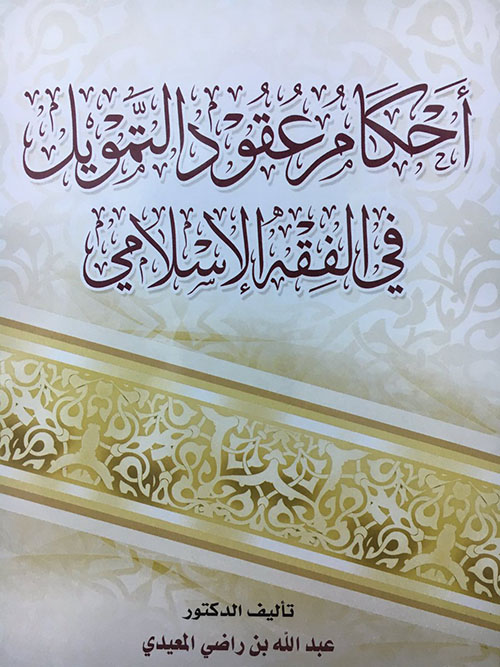 أَحْكَامُ عُقُودِ التَّمْوِيل
فِي الفِقْهِ الإِسْلَامِي
تأليف الدكتور
عبد الله بن راضي المعيدي